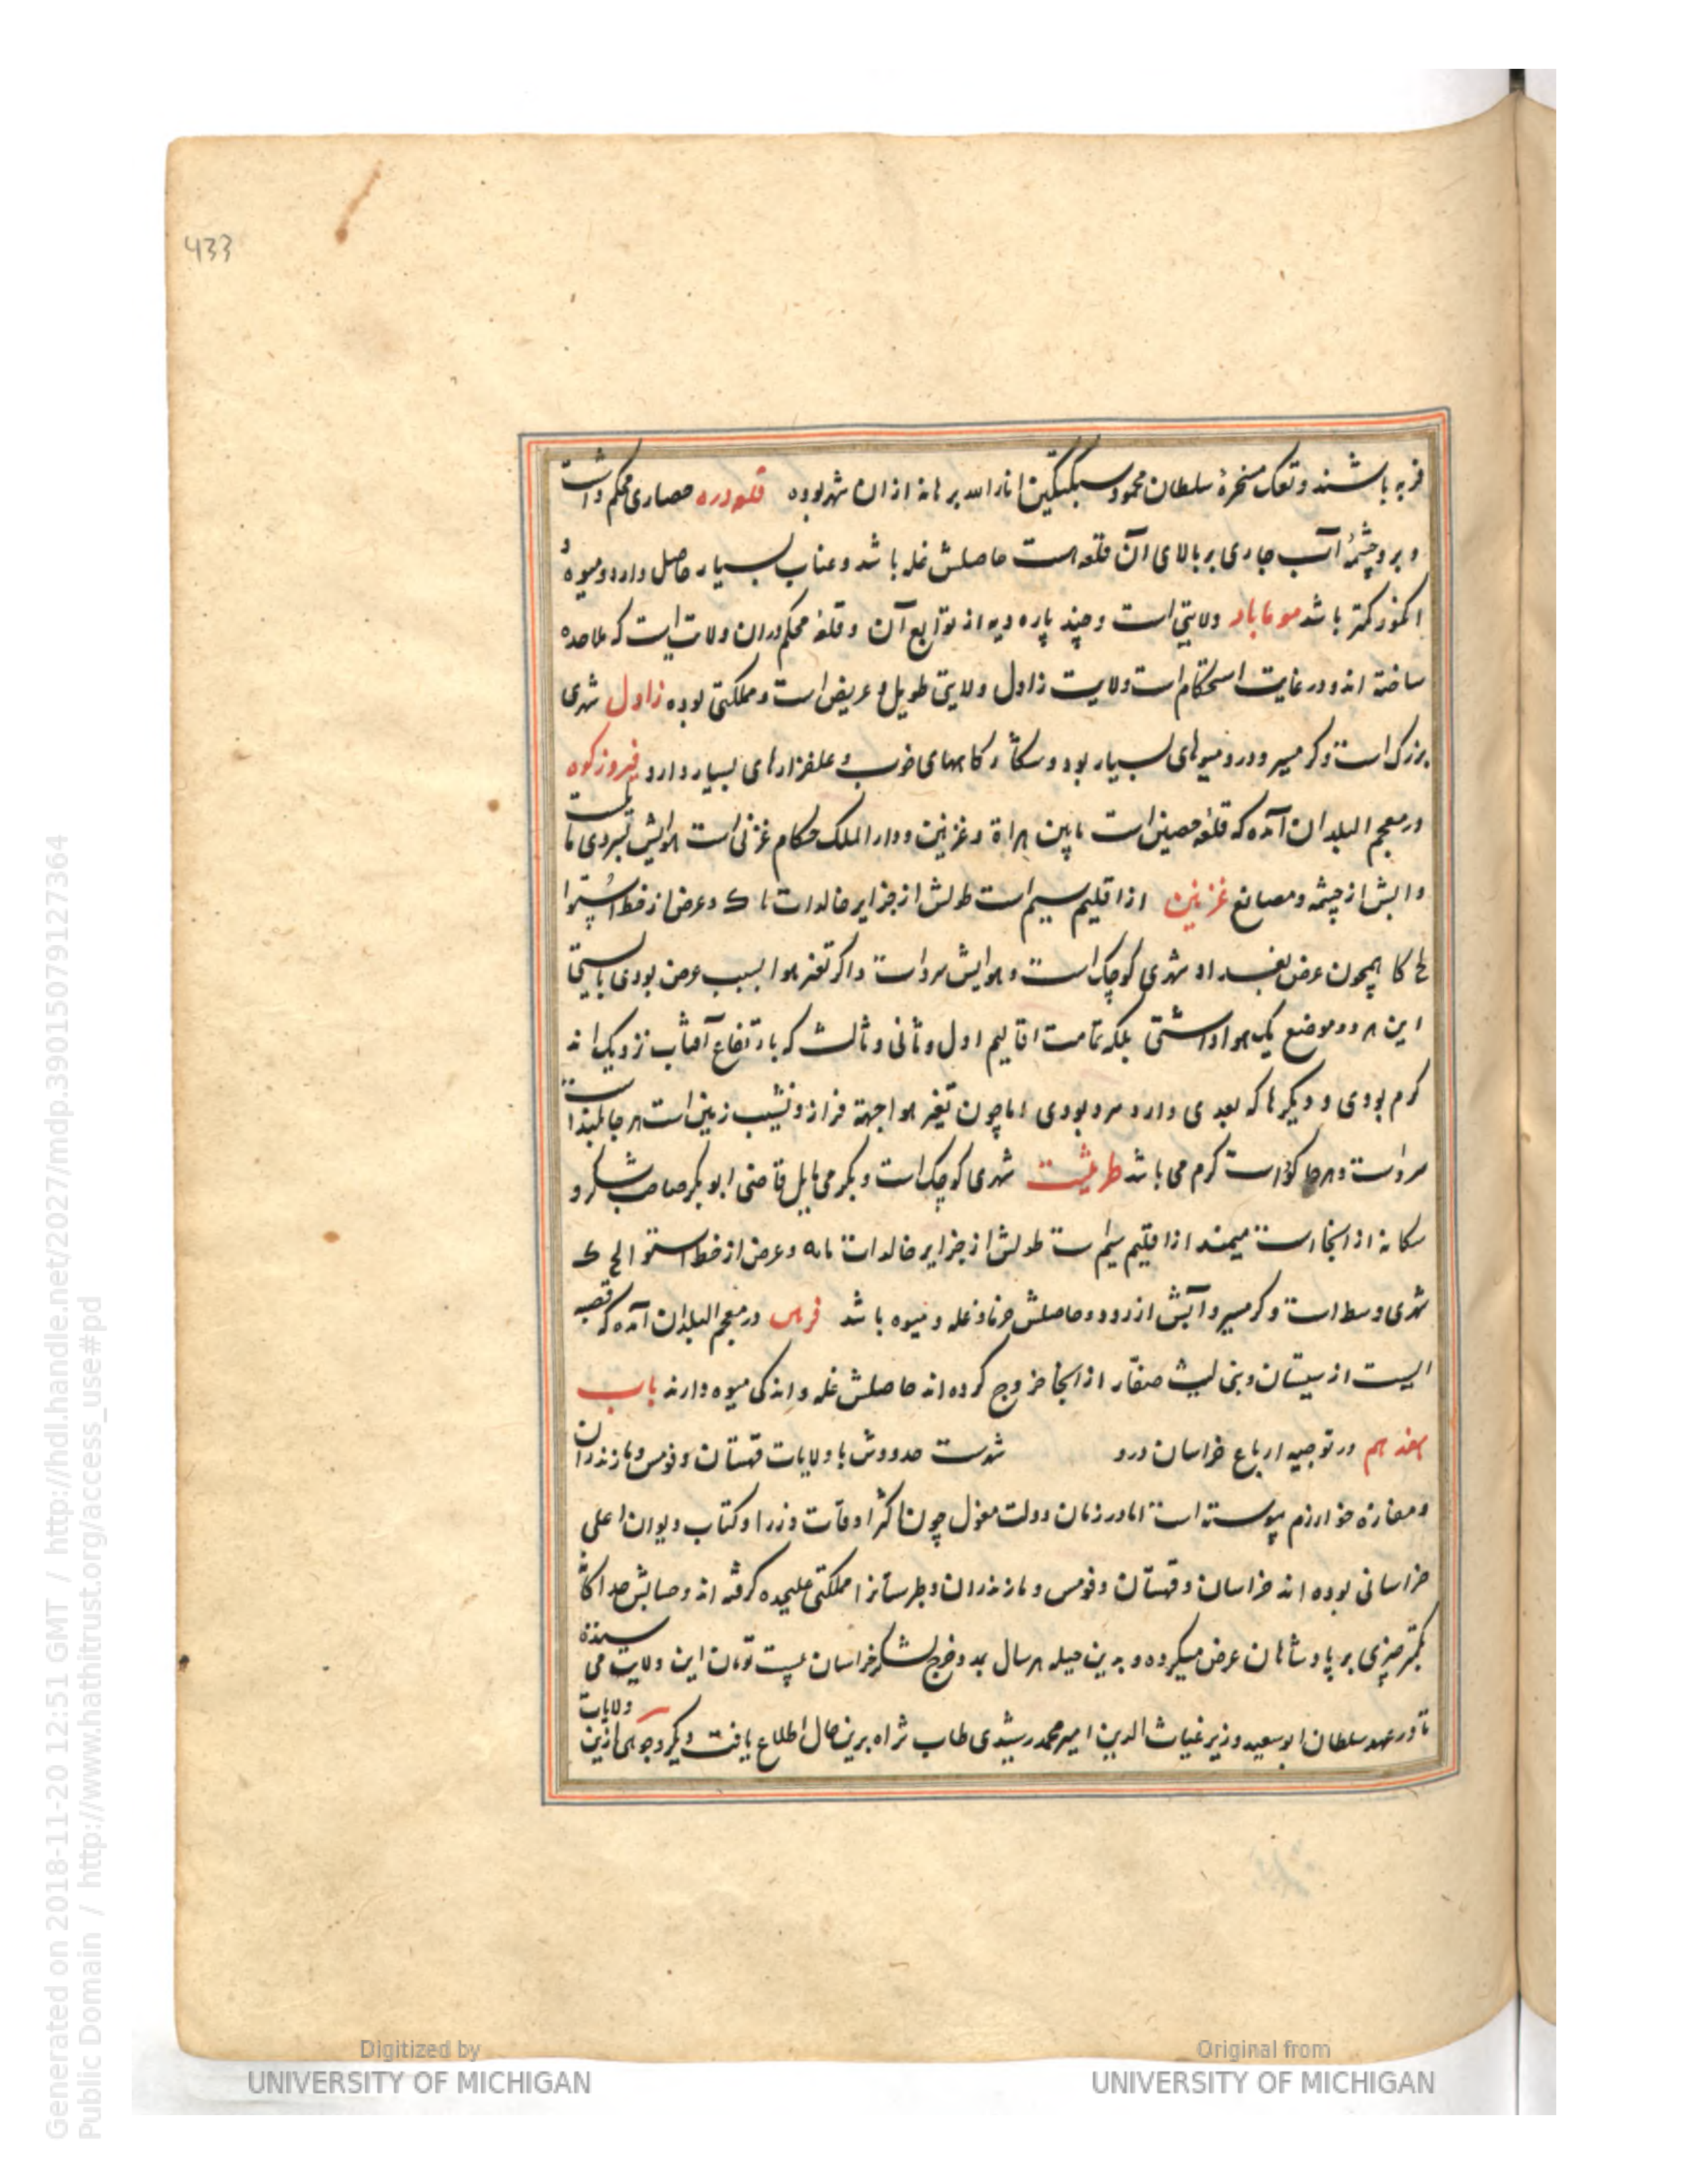 433
فربه باشند و تعک مسخرهٔ سلطان محمود سبکتکین انار الله برهانه ازان شهر بوده قلعه دره حصاری محکم داشت
و برو چشمهٔ آب جاری بر بالای آن قلعه است حاصلش غله باشد و عناب بسیار حاصل دارد و میوه و
انکور کمتر باشد موماباد ولایتی است و چند پاره دیه از توابع آن و قلعه محکم دران ولایت است که ملاحده
ساخته اند و در غایت استحکام است ولایت زاول ولایتی طویل و عریض است و مملکتی بوده زاول شهری
بزرک است و کرمسیر و درو میوهای بسیار بود و شکارکاههای خوب و علفزارهای بسیار دارد فیروزکوه
در معجم البلدان آمده که قلعه حصین است مابین هراة و غزنین و دار الملک حکام غزنی است هوایش بسردی مایلست
و ابش از چشمه و مصانع غزنین از اقلیم سیم است طولش از جزایر خالدات ک و عرض از خط استوا
لح کا همچون عرض بغداد شهری کوچک است و هوایش سرد است و اکر تغیر هوا بسبب عرض بودی بایستی تا
این هر دو موضع یک هوا داشتی بلکه تمامت اقالیم اول و ثانی و ثالث که بارتفاع آفتاب نزدیک اند
کرم بودی و دیکرها که بعدی دارد سرد بودی اما چون تغیر هوا جهة فراز و نشیب زمین است هر جا بلند است
سرد است و هر جا کو است کرم می باشد طرشت شهری کوچک است و بکرمی مایل قاضی ابو بکر صاحب شکر و
شکانه از انجا است میمند از اقلیم سیم است طولش از جزایر خالدات مه و عرض از خط استوا لح ک
شهری وسط است و کرمسیر و آبش از رود و حاصلش خرما و غله و میوه باشد فرس در معجم البلدان آمده که قصبه
ایست از سیستان و بنی لیث صفار از انجا خروج کرده اند حاصلش غله و اندکی میوه دارند باب
هفدهم در توجیه ارباع خراسان درو شهرست حدودش با ولایات قهستان و قومس و مازندران
و مفازه خوارزم پیوسته است اما در زمان دولت مغول چون اکثر اوقات وزرا و کتاب دیوان اعلی
خراسانی بوده اند خراسان و قهستان و قومس و مازندران و طبرستانرا مملکتی علیحده کرفته اند و حسابش جدا کانه
کمتر چیزی بر پادشاهان عرض میکرده و بدین حیله هر سال بمدد خرج لشکر خراسان بیست تومان این ولایت می ستده
تا در عهد سلطان ابوسعید وزیر غیاث الدین امیر محمد رشیدی طاب ثراه برین حال اطلاع یافت دیکر وجوهی ازین ولایات
Digitized by
UNIVERSITY OF MICHIGAN
Original from
UNIVERSITY OF MICHIGAN
Generated on 2018-11-20 12:51 GMT / http://hdl.handle.net/2027/mdp.39015079127364
Public Domain / http://www.hathitrust.org/access_use#pd